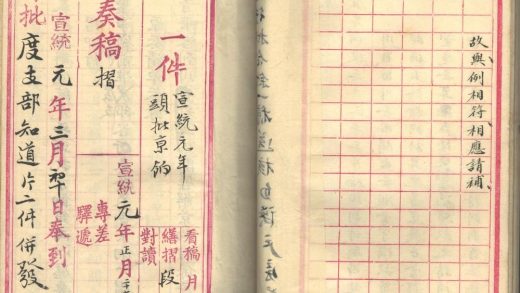 故與例相符、相應請補、
一件
宣統元年
頭批京餉
看稿 月
繕摺 段
對讀
宣統元年正月
專差
驛遞
奏稿 摺
宣統元年三月 日奉到
批 度支部知道片二件併發